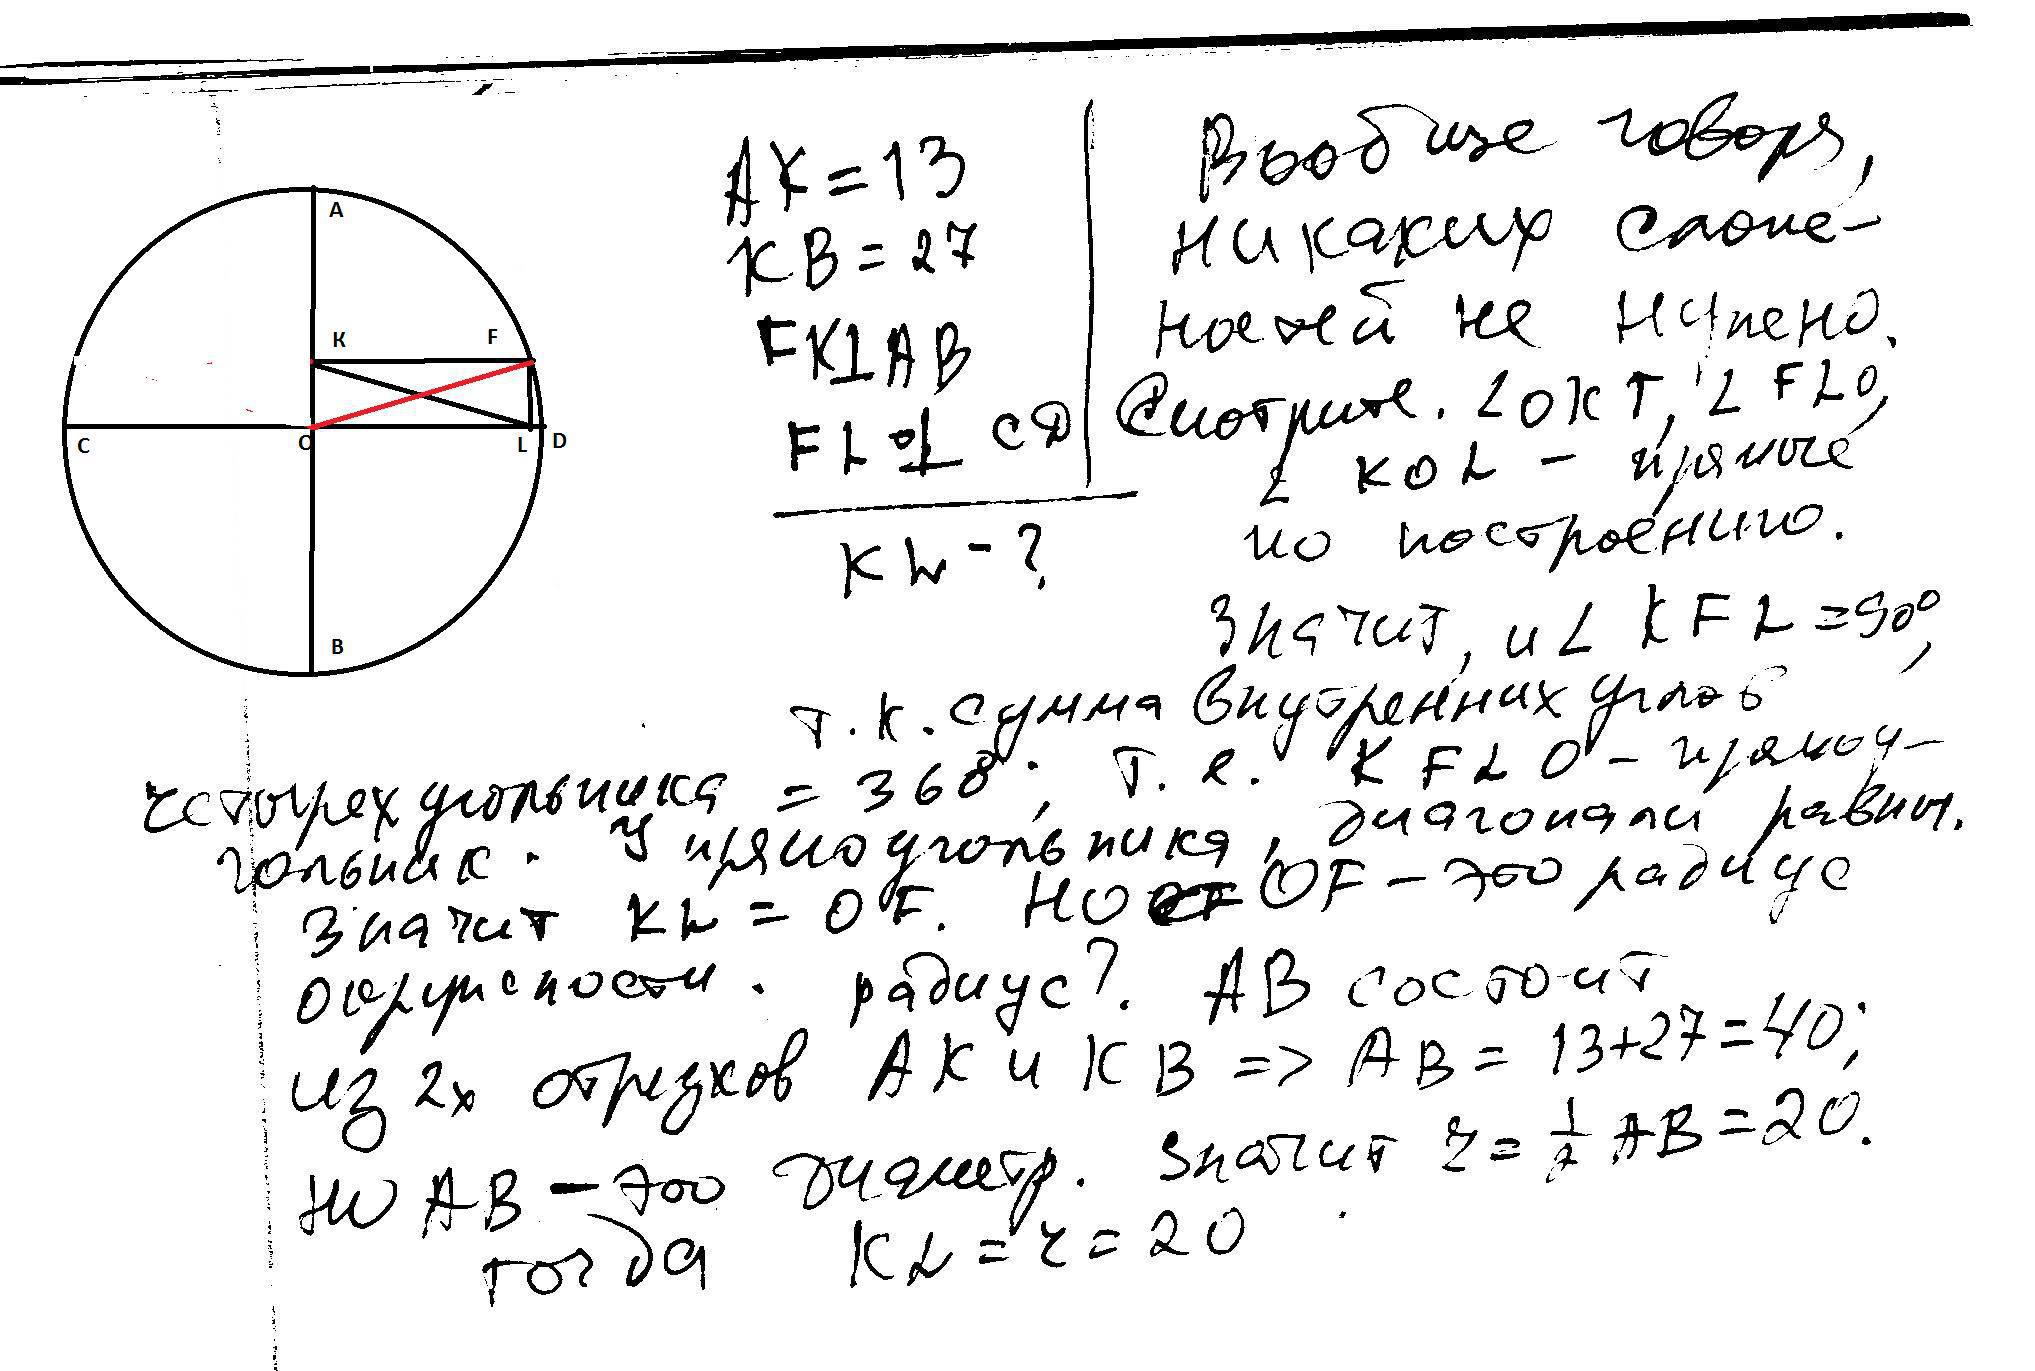 A
K
F
C
O
L
D
B
AK = 13
KB = 27
FK⊥AB
FL ⊥ СД
KL - ?
Вообще говоря,
никаких слож-
ностей не нужно.
Смотрите. ∠OKF, ∠FLO,
∠ KOL - прямые
по построению.
Значит, и ∠ KFL = 90°,
т.к. сумма внутренних углов
четырехугольника = 360°; т.е. KFLO - прямоу-
гольник. У прямоугольника, диагонали равны.
Значит KL = OF. Но OF - это радиус
окружности. радиус?. AB состоит
из 2х отрезков AK и KB => AB = 13+27=40;
но AB - это диаметр. Значит r = 1/2 AB = 20.
тогда KL = r = 20